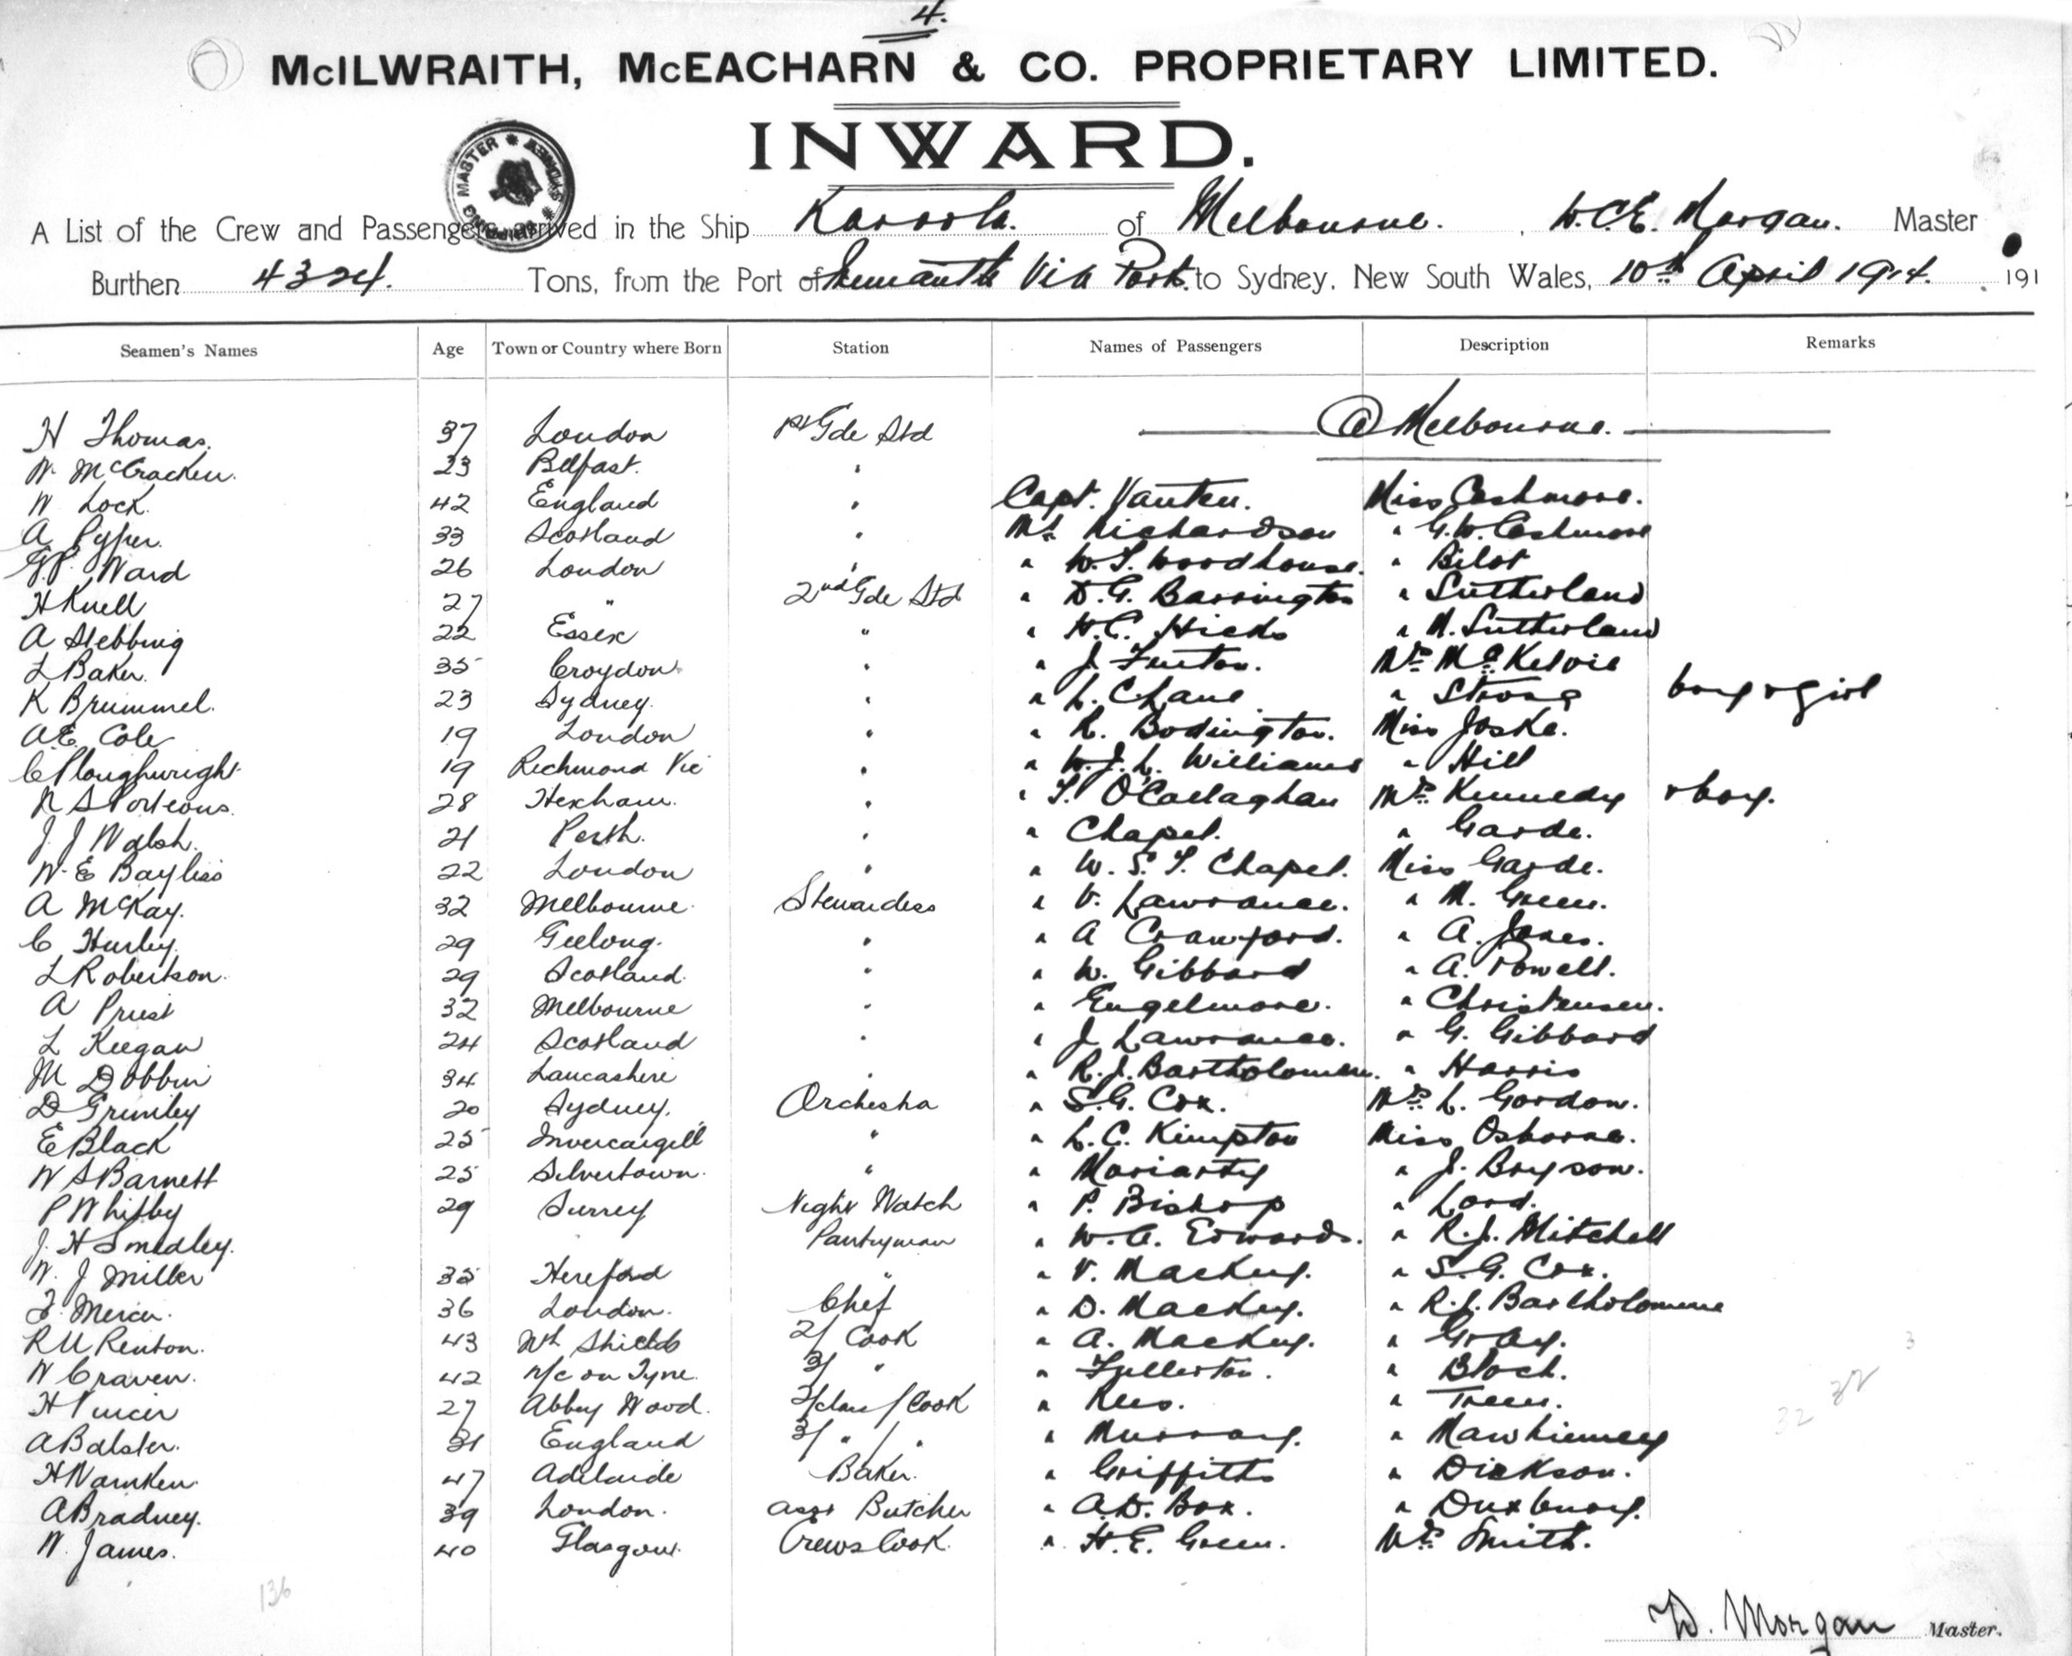 4.
McILWRAITH, McEACHARN & CO. PROPRIETARY LIMITED.
INWARD.
A List of the Crew and Passengers arrived in the Ship Karoola. of Melbourne. , W.C.E. Morgan. Master
Burthen 4324. Tons, from the Port of Fremantle Via Ports. to Sydney, New South Wales, 10th April 1914. 191
Seamen's Names Age Town or Country where Born Station Names of Passengers Description Remarks
H Thomas. 37 London 1st Gde Std @ Melbourne.
W. McCracken. 23 Belfast. "
W Lock. 42 England " Capt. Miss Cashmore.
A Pyper. 33 Scotland " Mr Richardson " G.W. Cashmore
G.P. Ward 26 London " " W.T. Woodhouse. " Bilot
H Knell 27 " 2nd Gde Std " D.G. Barrington " Sutherland
A Stebbing 22 Essex " " H.C. Hicks " M. Sutherland
L Baker. 35 Croydon. " " J. Furton. Mrs McKelvie
K Brummel. 23 Sydney. " " L. Chane " Strong boy & girl
A.E. Cole 19 London " " R. Bodington. Miss Joske.
C Ploughwright 19 Richmond Vic " " W.J.L. Williams " Hill
R S Porteous. 28 Hexham. " " T. O'Callaghan Mrs Kennedy & boy.
J J Walsh. 21 Perth. " " Chapel. " Garde.
W. E Bayliss 22 London " " W. S. T. Chapel. Miss Garde.
A McKay. 32 Melbourne. Stewardess " V. Lawrance. " M. Green.
C Hurley. 29 Geelong. " " A Crawford. " A. Jones.
L Robertson. 29 Scotland. " " W. Gibbard " A. Powell.
A Priest 32 Melbourne " " Engelmore. " Christensen.
L Keegan 24 Scotland " " J Lawrance. " G. Gibbard
M Dobbin 34 Lancashire " " R.J. Bartholomew. " Harris
D Grimley 20 Sydney. Orchestra " S.G. Cox. Mrs L. Gordon.
E Black 25 Invercargill " " L.C. Kimpton Miss Osborne.
W S Barnett 25 Silvertown. " " Moriarty " J. Bryson.
P Whitby 29 Surrey Night Watch " P. Bishop " Lord.
J. H Smedley. Pantryman " W.A. Edwards. " R.J. Mitchell
W. J Miller 35 Hereford " " V. Mackey. " S.G. Cox.
F. Mercer. 36 London. Chef " D. Mackey. " R.J. Bartholomew
R U Renton. 43 Nth Shields 2/ Cook " A. Mackey. " Gray.
W Craven. 42 N/c on Tyne. 3/ " " Fullerton. " Bloch.
H 27 Abbey Wood. 2/class / Cook " Rees. " Treen.
A Balster. 31 England 3/ " / " " Murray. " Mawhinney
H Warnken. 47 Adelaide Baker. " Griffiths " Dickson.
A Bradney. 39 London. Asst Butcher " A.D. Box. " Duxbury.
W. James. 40 Glasgow. Crews Cook. " H.E. Green. Mrs Smith.
3
32
32
136
W. Morgan Master.